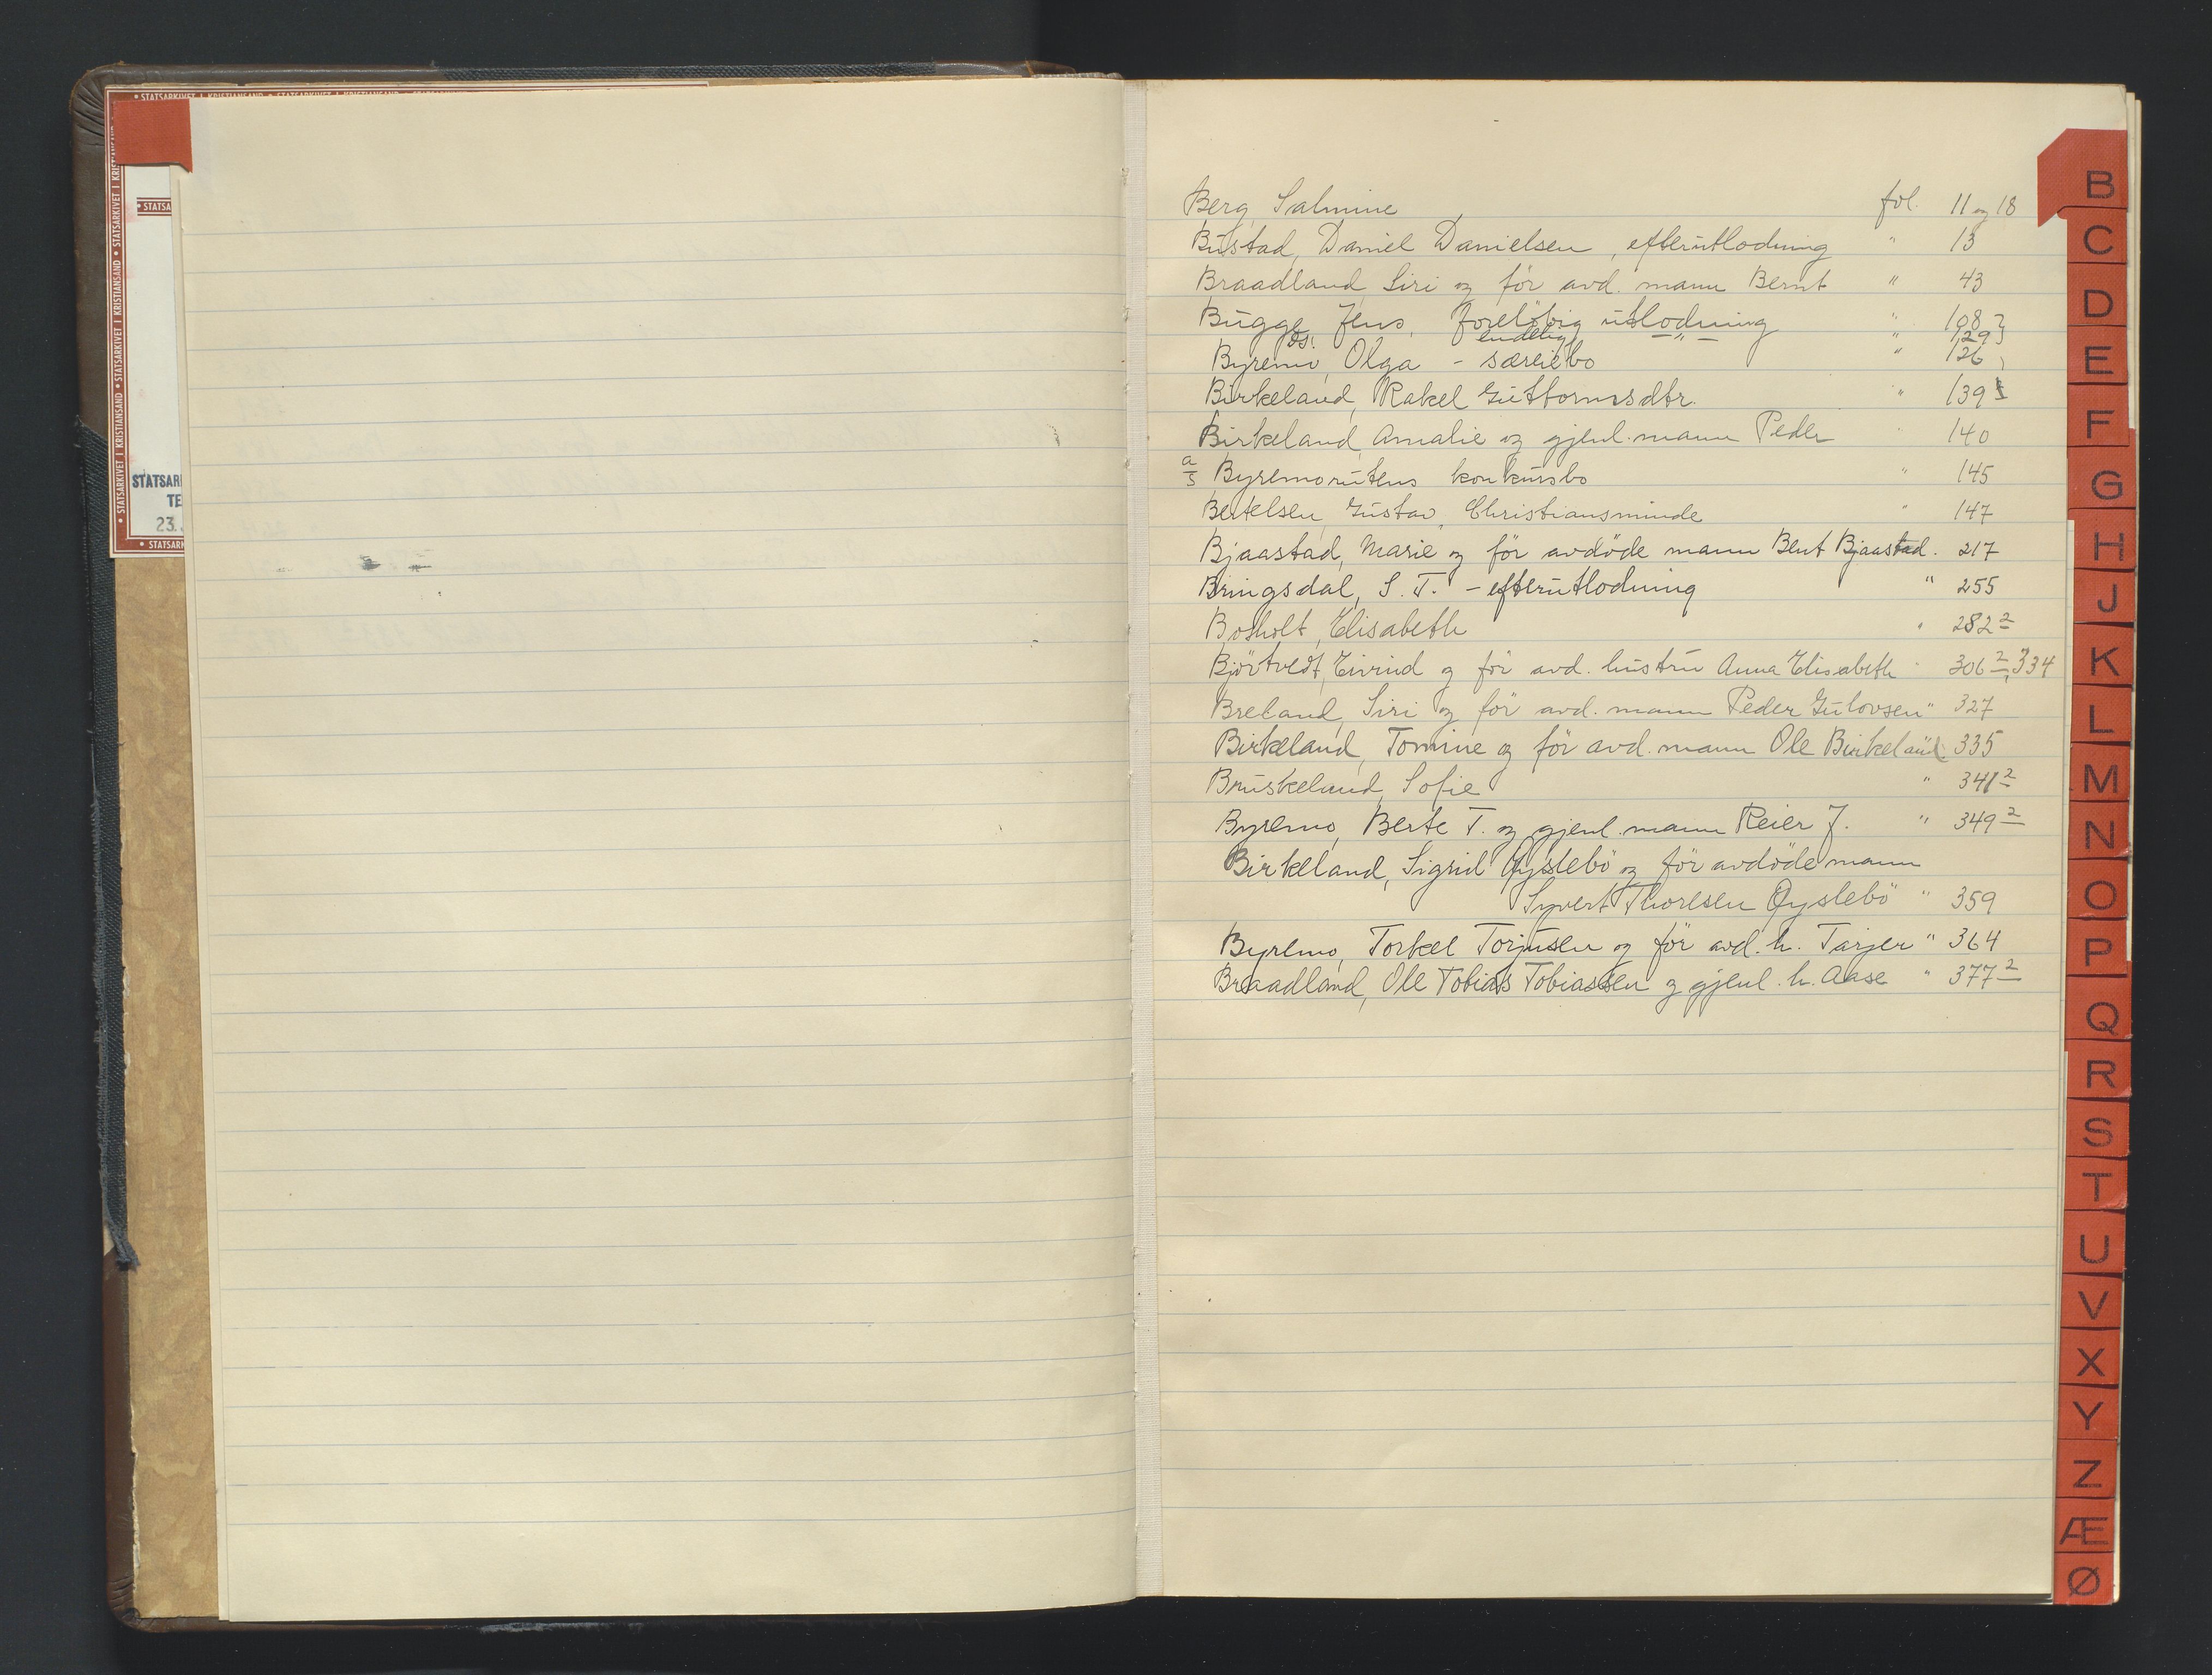 • STATSARKIVET I KRISTIANSAND • STATSARKIVET I KRISTIANSAND •
• STATSA
STATSAR
TE
23.
• STATSAR
Berg, Salmine fol. 11 og 18
Bustad, Daniel Danielsen, efterutlodning " 13
Braadland, Siri og för avd. mann Bernt " 43
Bugge, Jens, Foreløbig utlodning " 108 }
ds. endelig — " — " 129 }
Byremo, Olga - særeiebo " 126
Birkeland, Rakel Guttormsdtr. " 139
Birkeland, Amalie og gjenl. mann Peder " 140
a/s Byremorutens konkursbo " 145
Bertelsen, Gustav, Christiansminde " 147
Bjaastad, Marie og för avdöde mann Bent Bjaastad . 217
Bringsdal, S. T. - efterutlodning " 255
Bosholt, Elisabeth " 282 2
Björtvedt, Eivind og för avd. hustru Anna Elisabeth " 306 2, 334
Breland, Siri og för avd. mann Peder Gulovsen " 327
Birkeland, Tomine og för avd. mann Ole Birkeland 335
Bruskeland, Sofie " 341 2
Byremo, Berte T. og gjenl. mann Reier J. " 349 2
Birkeland, Sigrid Øyslebö og för avdöde mann
Syvert Thoresen Øyslebö " 359
Byremo, Torkel Torjusen og för avd. h. Tarjer " 364
Braadland, Ole Tobias Tobiassen og gjenl. h. Aase " 377 2
B
C
D
E
F
G
H
J
K
L
M
N
O
P
Q
R
S
T
U
V
X
Y
Z
Æ
Ø